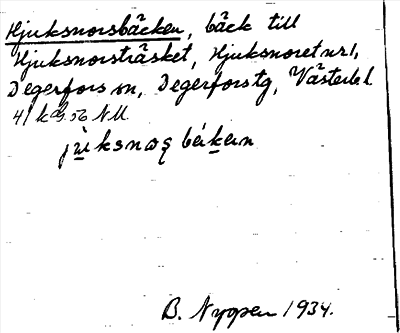 Hjuksnorsbäcken, bäck till
Hjuksnorsträsket, Hjuksnoret nr 1,
Degerfors sn, Degerfors tg, Västerb. l
41 k 56 NU
B. Nygren 1934.